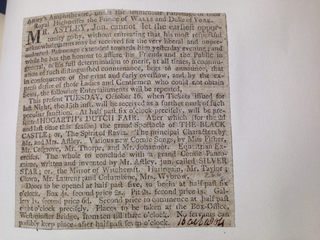 Astley's Amphitheatre, under the immediate Patronage of their
Royal Highnesses the Prince of WALES and Duke of YORK.
MR. ASTLEY, Jun. cannot let the earliest oppor-
tunity pass by, without entreating that his most respectful
acknowledgments may be received for the very liberal and unpre-
cedented Patronage extended towards him yesterday evening; and
while he has the honour to assure his Friends and the Public in
general, with his determination to merit, at all times, a continu-
ation of such distinguished countenance, begs to announce, that
in consequence of the great and early overflow, and by the ex-
press desire of those Ladies and Gentlemen who could not obtain
seats, the Summer Entertainments will be repeated.
This present TUESDAY, October 16, when Tickets issued for
last Night, the 15th inst. will be received to a further week of such
peculiar sanction. At half past six o'clock precisely, will be pre-
sented HOGARTH'S DUTCH FAIR. After which (for the 2d
and last time this season) the grand Spectacle of THE BLACK
CASTLE; or, The Spirited Rasia. The principal Characters by
Mr. and Mrs. Astley. Various new Comic Songs, by Miss Fisher,
Mr. Crossman, Mr. Thorpe, and Mr. Johannot. Equestrian Ex-
ercises. The whole to conclude with a grand Comic Panto-
mime, written and invented by Mr. Astley, jun. called SILVER
STAR; or, the Mirror of Witchcraft. Harlequin, Mr. Taylor;
Clown, Mr. Laurent; and Columbine, Mrs. Wybrow.
Doors to be opened at half past five, to begin at half past six
o'clock. Box 4s. second price 2s. Pit 2s. second price 1s. Gal-
lery 1s. second price 6d. Second price to commence at half past
eight o'clock precisely. Places to be taken at the Box-Office,
Westminster Bridge, from ten till three o'clock. No servants can
publicly keep place after half past six o'clock.
16 Oct 1804